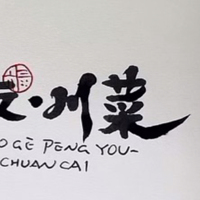 友·川菜
OGE PENG YOU-
CHUAN CAI